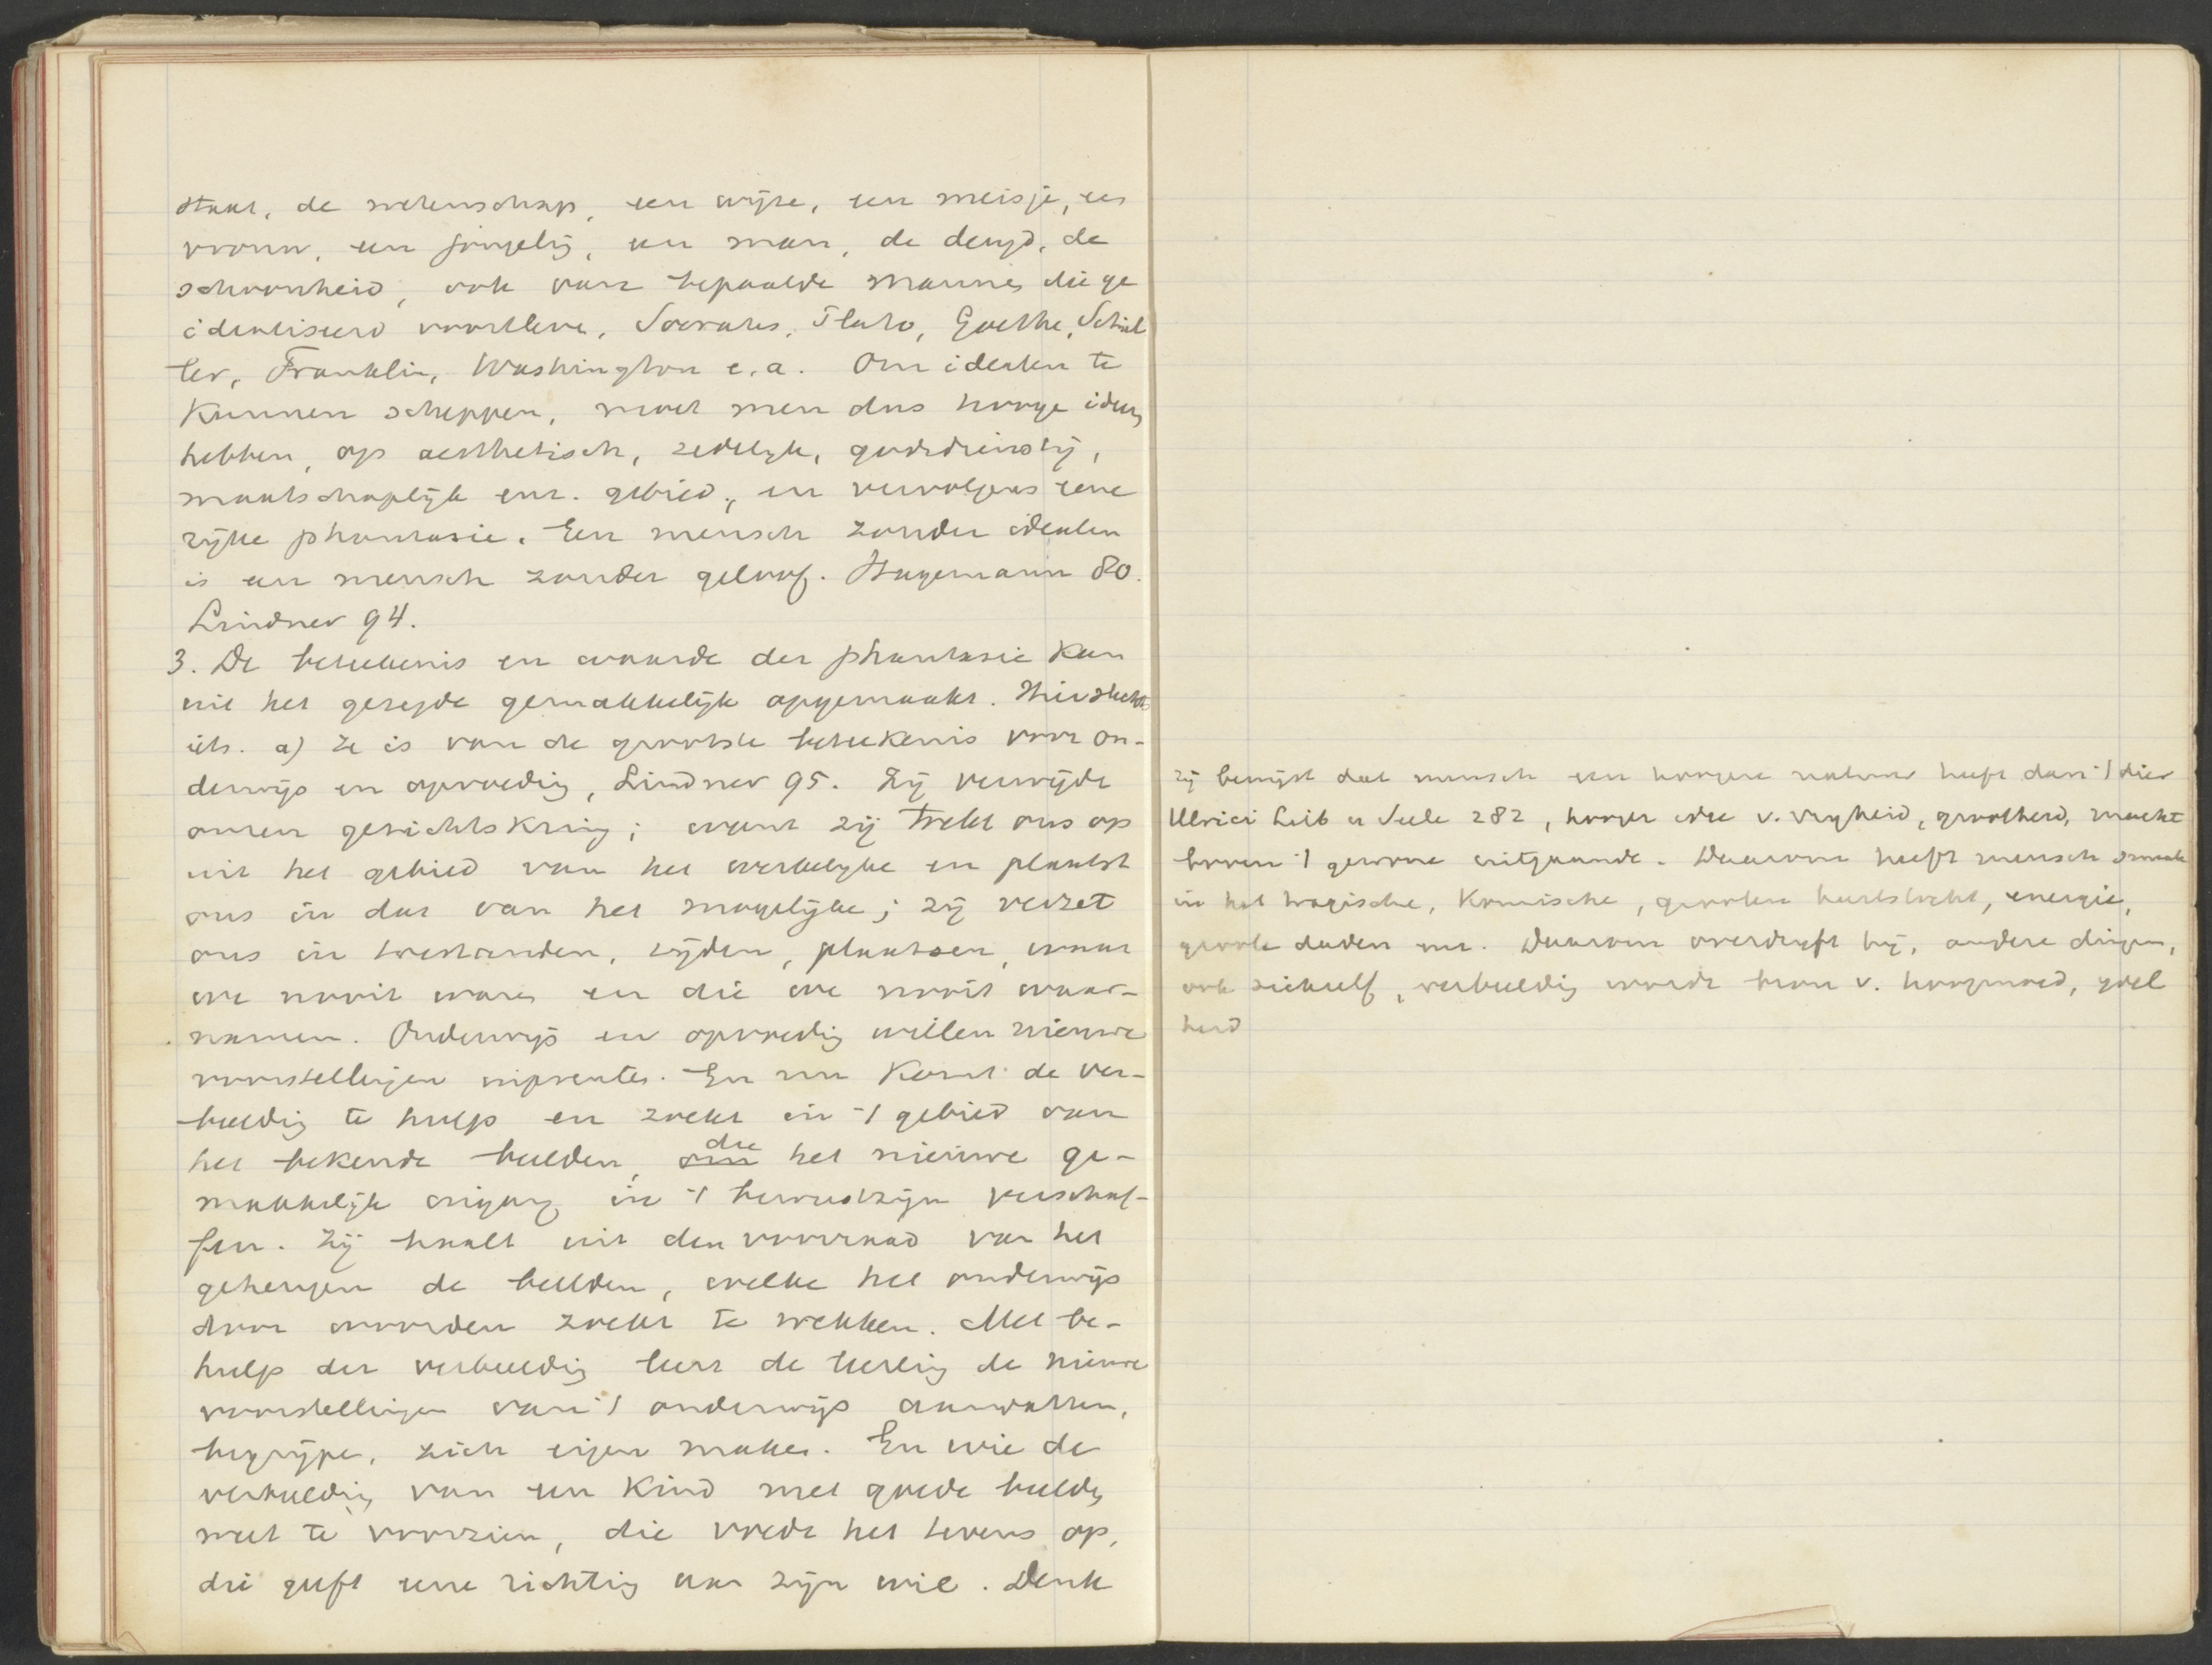 staat, de wetenschap, een wijze, een meisje, een
vrouw, een jongeling, een man, de deugd, de
schoonheid, ook van bepaalde mannen die ge
idealiseerd voortleven, Socrates, Plato, Goethe, Schil
ler, Franklin, Washington e.a. Om idealen te
kunnen scheppen, moet men dus hooge ideeen
hebben, op aesthetisch, zedelijk, godsdienstig,
maatschaplijk enz. gebied, en vervolgens eene
rijke phantasie. Een mensch zonder idealen
is een mensch zonder geloof. Hagemann 80.
Lindner 94.
3. De beteekenis en waarde der phantasie kan
uit het gezegde gemakkelijk opgemaakt. Hier slechts
iets. a) Ze is van de grootste beteekenis voor on-
derwijs en opvoeding, Lindner 95. Zij verwijdt
onzen gezichtskring; want zij trekt ons op
uit het gebied van het werkelijke en plaatst
ons in dat van het mogelijke; zij verzet
ons in toestanden, tijden, plaatsen, waar
we nooit waren en die we nooit waar-
namen. Onderwijs en opvoeding willen nieuwe
voorstellingen inprenten. En nu komt de ver-
beelding te hulp en zoekt in 't gebied van
het bekende beelden, die het nieuwe ge-
makkelijk ingang in 't bewustzijn verschaf-
fen. Zij haalt uit den voorraad van het
geheugen de beelden, welke het onderwijs
door woorden zoekt te wekken. Met be-
hulp der verbeelding leert de leerling de nieuwe
voorstellingen van 't onderwijs aanvatten,
begrijpen, zich eigen maken. En wie de
verbeelding van een kind met goede beelden
weet te voorzien, die voedt het tevens op,
die geeft eene richting aan zijn wil. Denk
zij bewijst dat mensch een hoogere natuur heeft dan 't dier
Ulrici Leib u Seele 282, hooger idee v. vrijheid, grootheid, macht
boven 't gewone uitgaande. Daarom heeft mensch smaak
in het tragische, komische, grooten hartstocht, energie,
groote daden enz. Daarom overdrijft hij, andere dingen,
ook zichzelf, verbeelding wordt bron v. hoogmoed, ijdel
heid